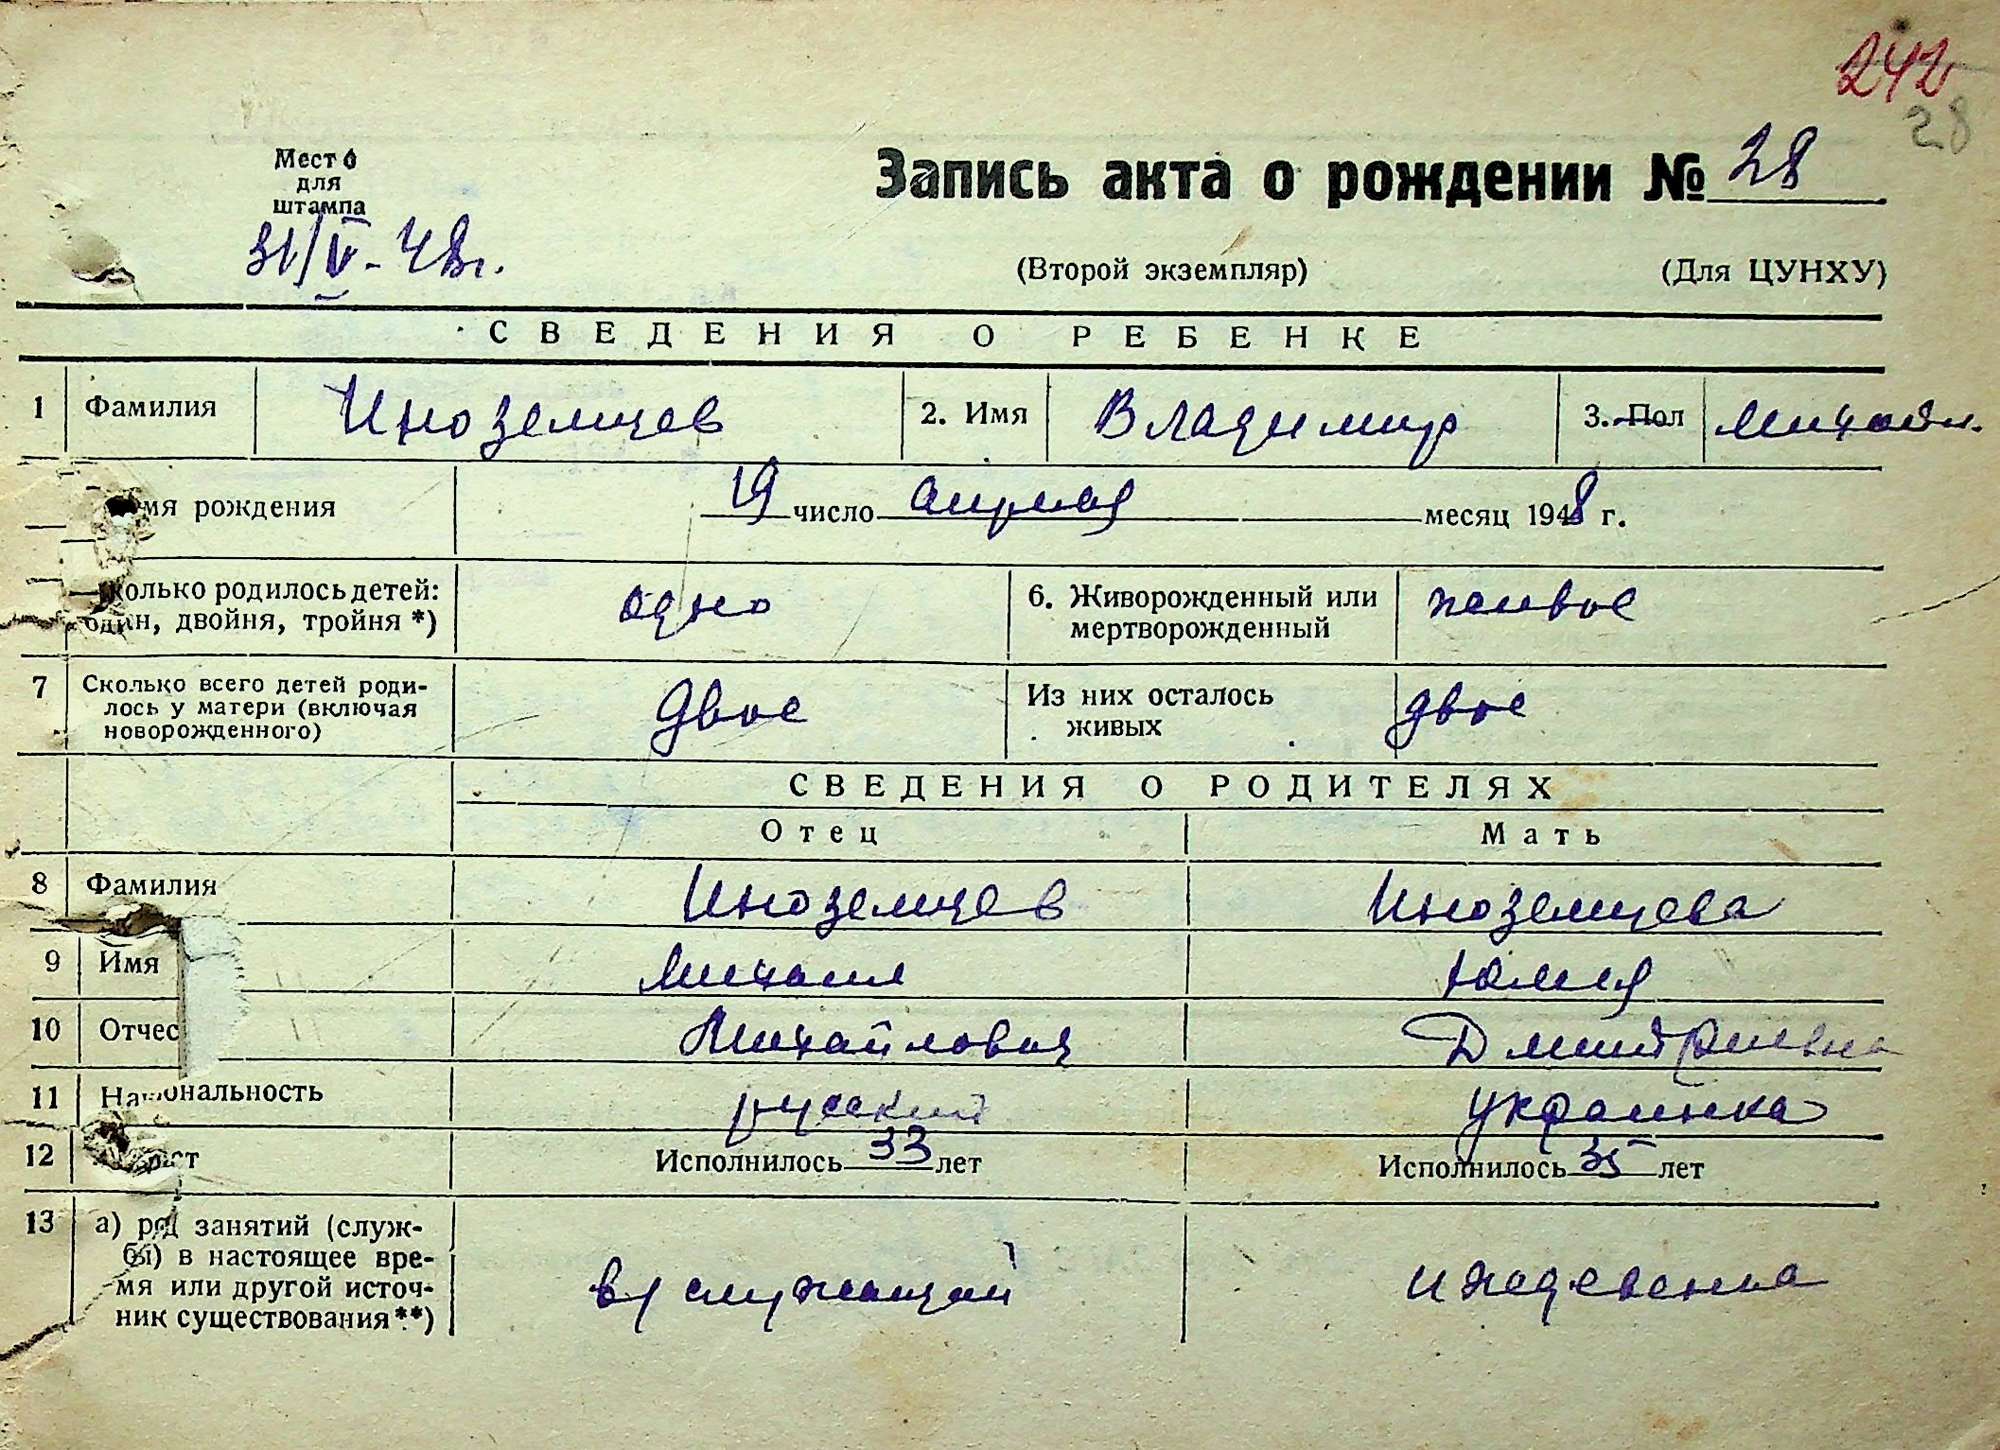 242
28
Место
для
штампа
Запись акта о рождении № 28
31/V-48г.
(Второй экземпляр) (Для ЦУНХУ)
СВЕДЕНИЯ О РЕБЕНКЕ
1 Фамилия Иноземцев 2. Имя Владимир 3. Пол Михайл.
мя рождения 19 число апреля месяц 1948 г.
колько родилось детей: один, двойня, тройня *) одно 6. Живорожденный или мертворожденный живое
7 Сколько всего детей роди-
лось у матери (включая
новорожденного) двое Из них осталось живых двое
СВЕДЕНИЯ О РОДИТЕЛЯХ
Отец Мать
8 Фамилия Иноземцев Иноземцева
9 Имя Михаил Юлия
10 Отчес Михайлович Дмитриевна
11 Национальность русский украинка
12 Исполнилось 33 лет Исполнилось 35 лет
13 а) род занятий (служ-
бы) в настоящее вре-
мя или другой источ-
ник существования**) в/служащий иждевенка